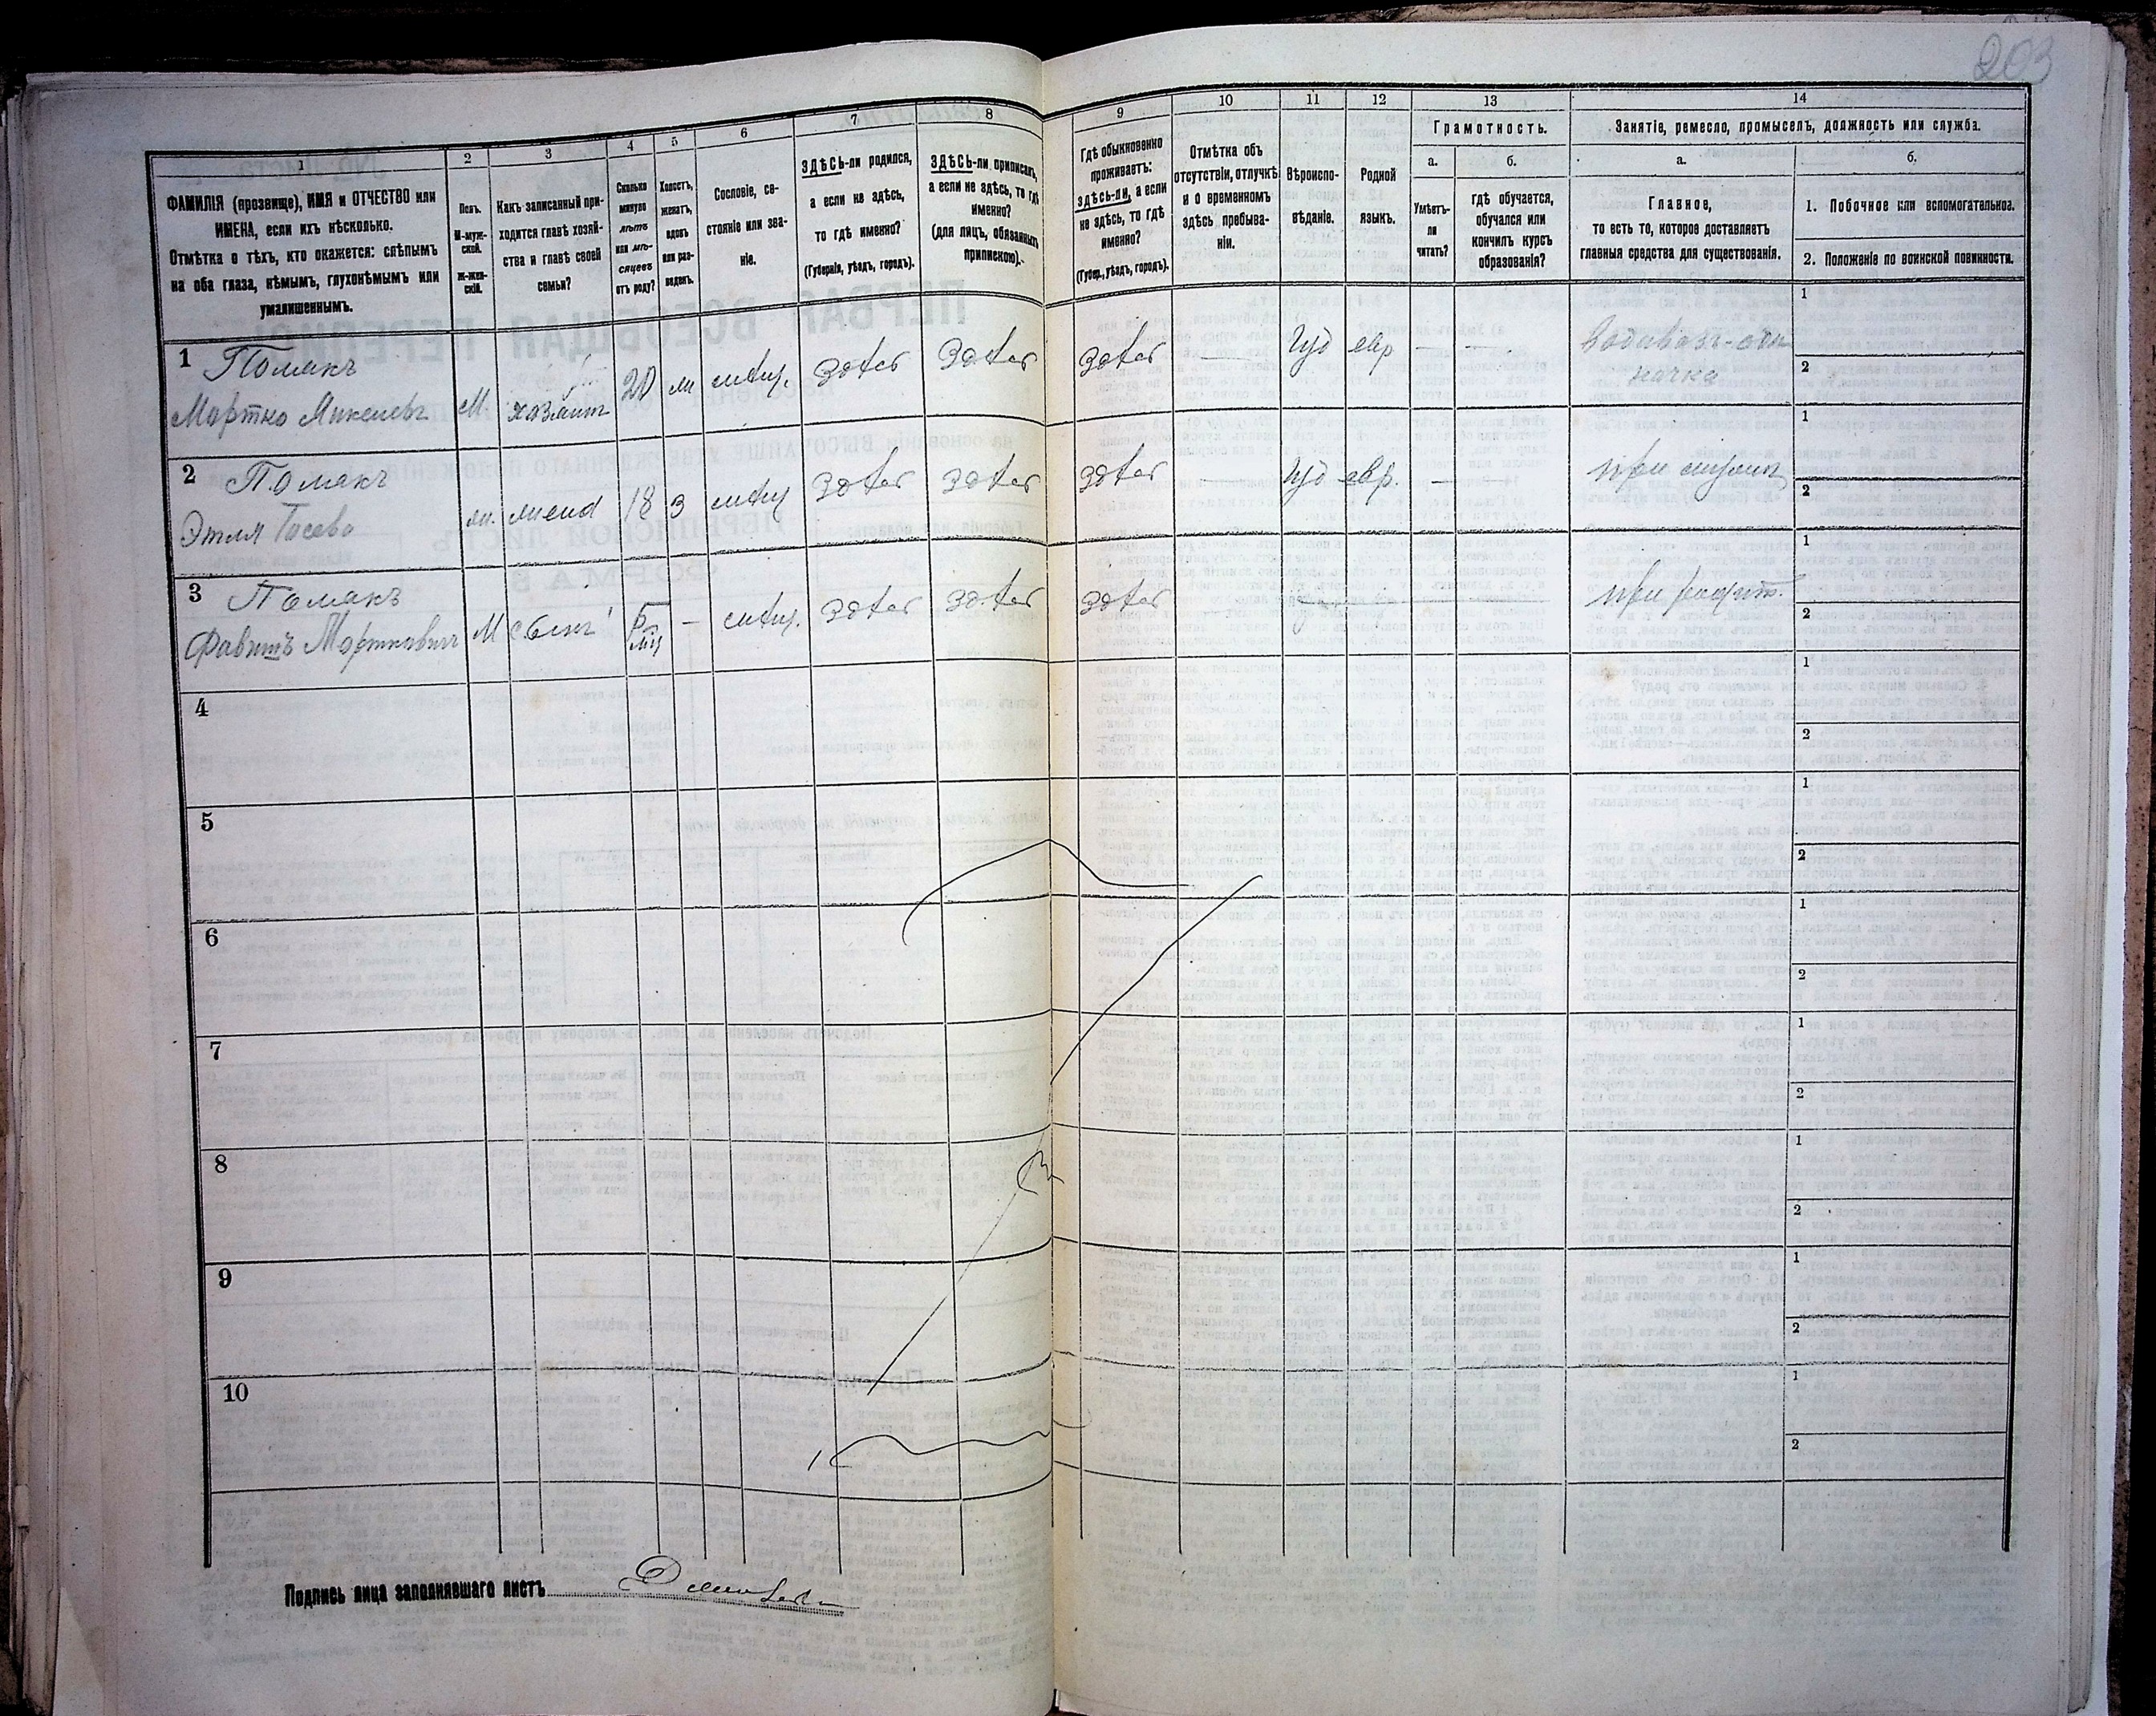 203
1
2
3
4
5
6
7
8
9
10
11
12
13
14
ФАМИЛІЯ (прозвище), ИМЯ и ОТЧЕСТВО или
ИМЕНА, если ихъ нѣсколько.
Отмѣтка о тѣхъ, кто окажется: слѣпымъ
на оба глаза, нѣмымъ, глухонѣмымъ или
умалишеннымъ.
Полъ.
М-муж-
ской.
Ж-жен-
скій.
Какъ записанный при-
ходится главѣ хозяй-
ства и главѣ своей
семьи?
Сколько
минуло
лѣтъ
или мѣ-
сяцевъ
отъ роду?
Холостъ,
женатъ,
вдовъ
или раз-
веденъ.
Сословіе, со-
стояніе или зва-
ніе.
ЗДѢСЬ-ли родился,
а если не здѣсь,
то гдѣ именно?
(Губернія, уѣздъ, городъ).
ЗДѢСЬ-ли приписанъ,
а если не здѣсь, то гдѣ
именно?
(для лицъ, обязанныхъ
припискою).
Гдѣ обыкновенно
проживаетъ:
здѣсь-ли, а если
не здѣсь, то гдѣ
именно?
(Губер., уѣздъ, городъ).
Отмѣтка объ
отсутствіи, отлучкѣ
и о временномъ
здѣсь пребыва-
ніи.
Вѣроиспо-
вѣданіе.
Родной
языкъ.
Грамотность.
а.
Умѣетъ-
ли
читать?
б.
гдѣ обучается,
обучался или
кончилъ курсъ
образованія?
Занятіе, ремесло, промыселъ, должность или служба.
а.
Главное,
то есть то, которое доставляетъ
главныя средства для существованія.
б.
1. Побочное или вспомогательное.
2. Положеніе по воинской повинности.
1 Помакъ
Мортко М хозяинъ 20 мѣщ. здѣсь здѣсь здѣсь — Іуд евр — —
1
2
2 Помакъ
Этля жена 18 з мѣщ здѣсь здѣсь здѣсь — Іуд евр. — при
1
2
3 Помакъ
Мортковичъ М сынъ 5 мѣс — мѣщ. здѣсь здѣсь здѣсь при родит.
1
2
4
1
2
5
1
2
6
1
2
7
1
2
8
1
2
9
1
2
10
1
2
Подпись лица заполнявшаго листъ